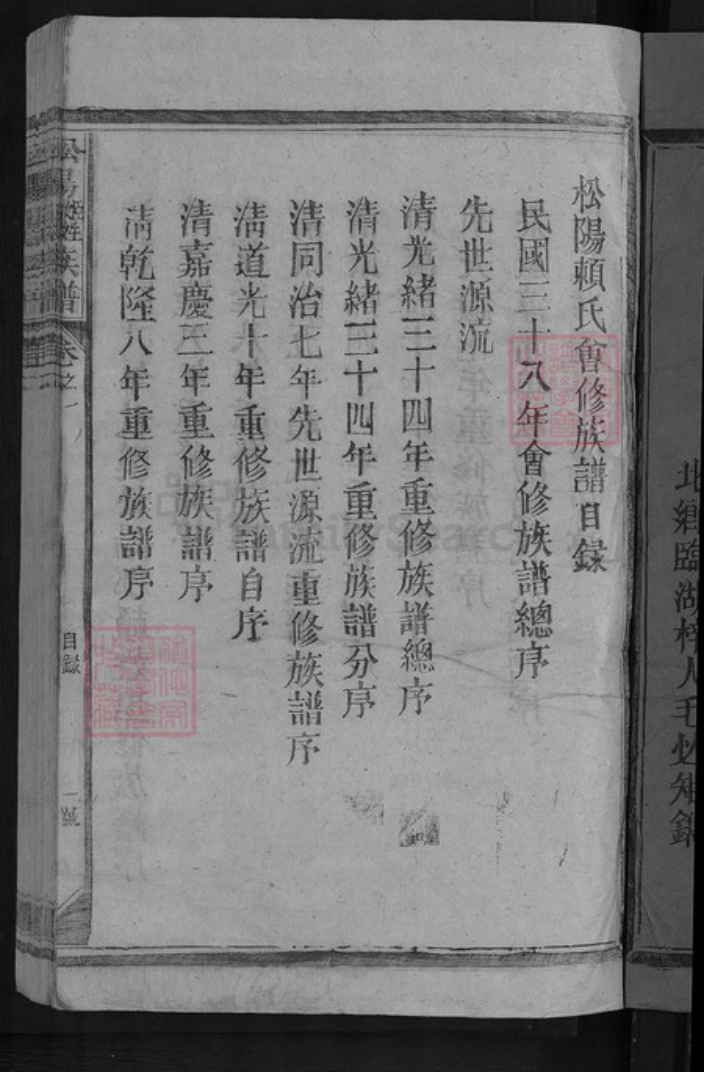 北鄉臨湖梓人毛必
松陽賴氏會修族譜目録
民國三十八年會修族譜總序
先世源流
清光緒三十四年重修族譜總序
清光緒三十四年重修族譜分序
清同治七年先世源流重修族譜序
清道光十年重修族譜自序
清嘉慶三年重修族譜序
清乾隆八年重修族譜序
族譜
卷之一
目録
一號
FamilySearch